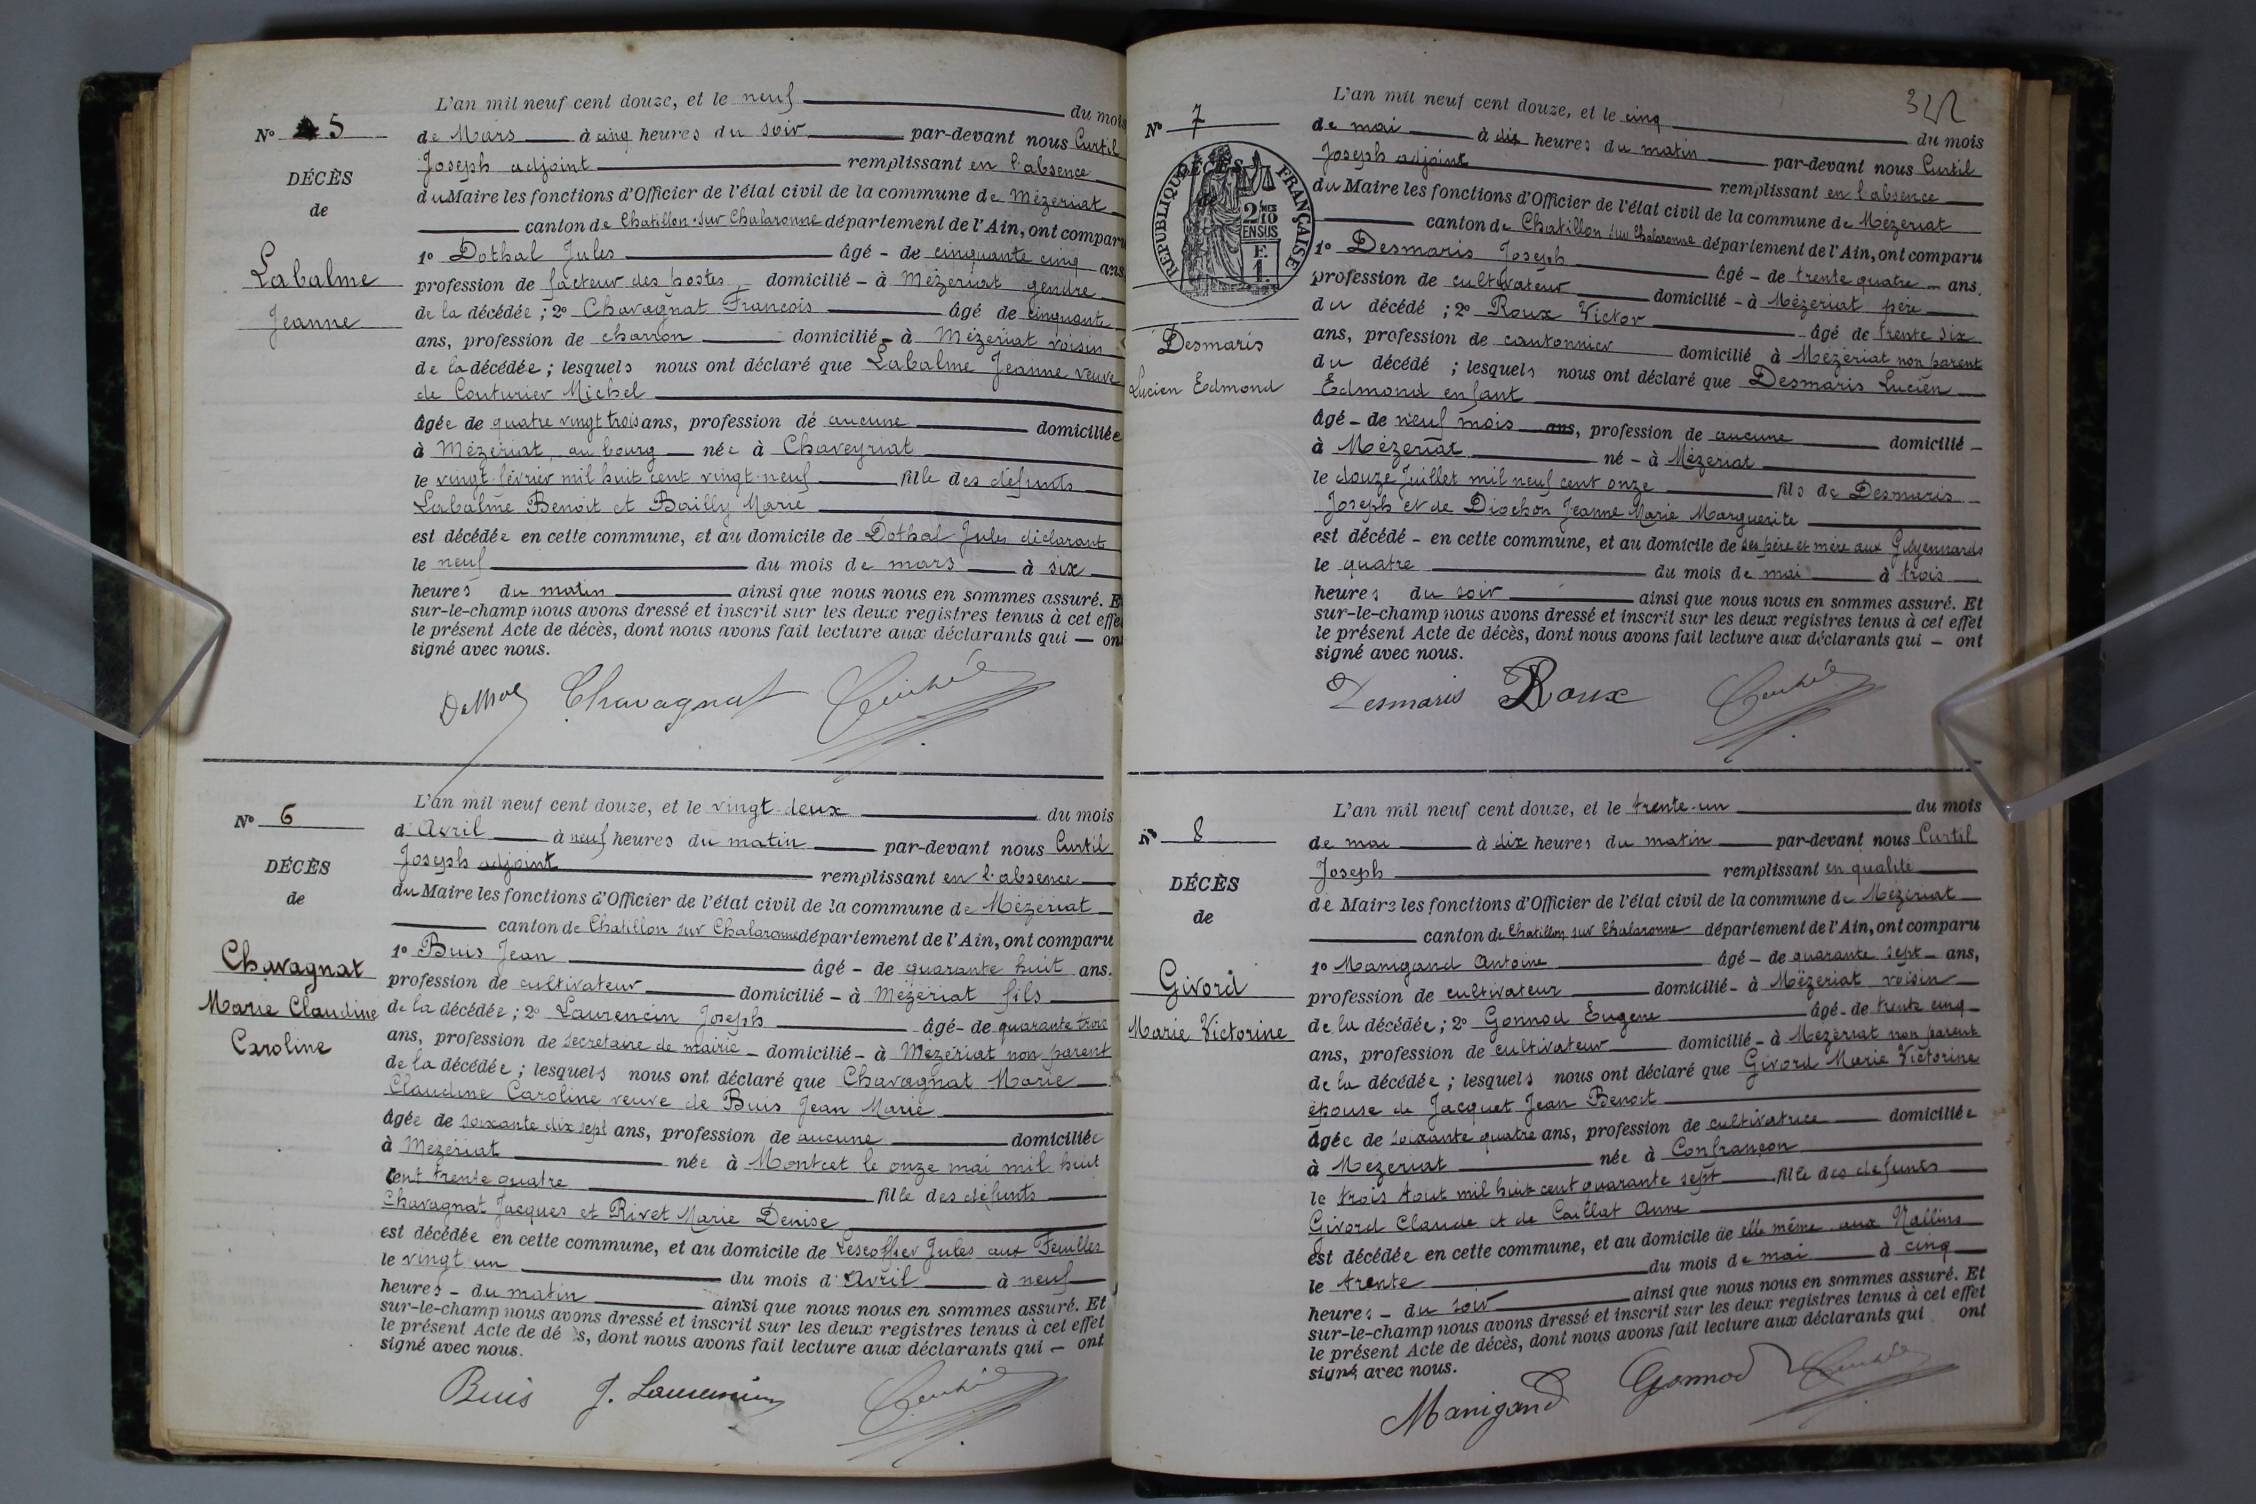 L'an mil neuf cent douze, et le neuf du mois
N° 5
de Mars à cinq heures du soir par-devant nous Curtil
Joseph adjoint remplissant en l'absence
DÉCÈS
du Maire les fonctions d'Officier de l'état civil de la commune de Mézériat
de
canton de Chatillon-sur-Chalaronne département de l'Ain, ont comparu
1° Dothal Jules âgé - de cinquante cinq ans
Labalme
Jeanne
profession de facteur des postes - domicilié - à Mézériat gendre
de la décédée ; 2° Chavagnat François âgé de cinquante
ans, profession de charron domicilié - à Mézériat voisin
de la décédée ; lesquels nous ont déclaré que Labalme Jeanne veuve
de Couturier Michel
âgée de quatre vingt trois ans, profession de aucune domiciliée
à Mézériat, au bourg née à Chaveyriat
le vingt février mil huit cent vingt-neuf fille des défunts
Labalme Benoit et Bailly Marie
est décédée en cette commune, et au domicile de Dothal Jules déclarant
le neuf du mois de mars à six
heures du matin ainsi que nous nous en sommes assuré. E
sur-le-champ nous avons dressé et inscrit sur les deux registres tenus à cet effe
le présent Acte de décès, dont nous avons fait lecture aux déclarants qui — on
signé avec nous.
Chavagnat
L'an mil neuf cent douze, et le vingt-deux du mois
N° 6
d'Avril à neuf heures du matin par-devant nous Curtil
Joseph adjoint remplissant en l'absence
DÉCÈS
du Maire les fonctions d'Officier de l'état civil de la commune de Mézériat
de
canton de Chatillon sur Chalaronne département de l'Ain, ont comparu
1° Buis Jean âgé - de quarante huit ans.
Chavagnat
Marie Claudine
Caroline
profession de cultivateur domicilié - à Mézériat fils
de la décédée ; 2° Laurencin Joseph âgé - de quarante trois
ans, profession de secrétaire de mairie - domicilié - à Mézériat non parent
de la décédée ; lesquels nous ont déclaré que Chavagnat Marie
Claudine Caroline veuve de Buis Jean Marie
âgée de soixante dix sept ans, profession de aucune domiciliée
à Mézériat née à Montcet le onze mai mil huit
cent trente quatre fille des défunts
Chavagnat Jacques et Rivet Marie Denise
est décédée en cette commune, et au domicile de Lescoffier Jules aux Feuilles
le vingt un du mois d'Avril à neuf
heures - du matin ainsi que nous nous en sommes assuré. Et
sur-le-champ nous avons dressé et inscrit sur les deux registres tenus à cet effet
le présent Acte de dé s, dont nous avons fait lecture aux déclarants qui — ont
signé avec nous.
Buis J. Laurencin
L'an mil neuf cent douze, et le cinq du mois
N° 7
de mai à dix heures du matin par-devant nous Curtil
Joseph adjoint remplissant en l'absence
DÉCÈS
de
RÉPUBLIQUE FRANÇAISE
2/10 EN SUS
E.
1.
du Maire les fonctions d'Officier de l'état civil de la commune de Mézériat
canton de Chatillon sur Chalaronne département de l'Ain, ont comparu
1° Desmaris Joseph âgé - de trente quatre - ans,
profession de cultivateur domicilié - à Mézériat père
du décédé ; 2° Roux Victor âgé de trente six
Desmaris
Lucien Edmond
ans, profession de cantonnier domicilié à Mézériat non parent
du décédé ; lesquels nous ont déclaré que Desmaris Lucien
Edmond enfant
âgé - de neuf mois ans, profession de aucune domicilié -
à Mézériat né - à Mézériat
le douze Juillet mil neuf cent onze fils de Desmaris
Joseph et de Diochon Jeanne Marie Marguerite
est décédé - en cette commune, et au domicile de ses père et mère aux Guyennards
le quatre du mois de mai à trois
heures du soir ainsi que nous nous en sommes assuré. Et
sur-le-champ nous avons dressé et inscrit sur les deux registres tenus à cet effet
le présent Acte de décès, dont nous avons fait lecture aux déclarants qui — ont
signé avec nous.
Desmaris Roux
L'an mil neuf cent douze, et le trente-un du mois
N° 8
de mai à dix heures du matin par-devant nous Curtil
Joseph remplissant en qualité
DÉCÈS
de Maire les fonctions d'Officier de l'état civil de la commune de Mézériat
de
canton de Chatillon sur Chalaronne département de l'Ain, ont comparu
1° Manigand Antoine âgé - de quarante sept - ans,
Givord
Marie Victorine
profession de cultivateur domicilié - à Mézériat voisin
de la décédée ; 2° Gonnod Eugène âgé - de trente cinq
ans, profession de cultivateur domicilié - à Mézériat non parent
de la décédée ; lesquels nous ont déclaré que Givord Marie Victorine
épouse de Jacquet Jean Benoit
âgée de soixante quatre ans, profession de cultivatrice domiciliée
à Mézériat née à Confrançon
le trois Aout mil huit cent quarante sept fille des défunts
Givord Claude et de Caillat Anne
est décédée en cette commune, et au domicile de elle même aux Nallins
le trente du mois de mai à cinq
heures - du soir ainsi que nous nous en sommes assuré. Et
sur-le-champ nous avons dressé et inscrit sur les deux registres tenus à cet effet
le présent Acte de décès, dont nous avons fait lecture aux déclarants qui ont
signé avec nous.
Manigand Gonnod